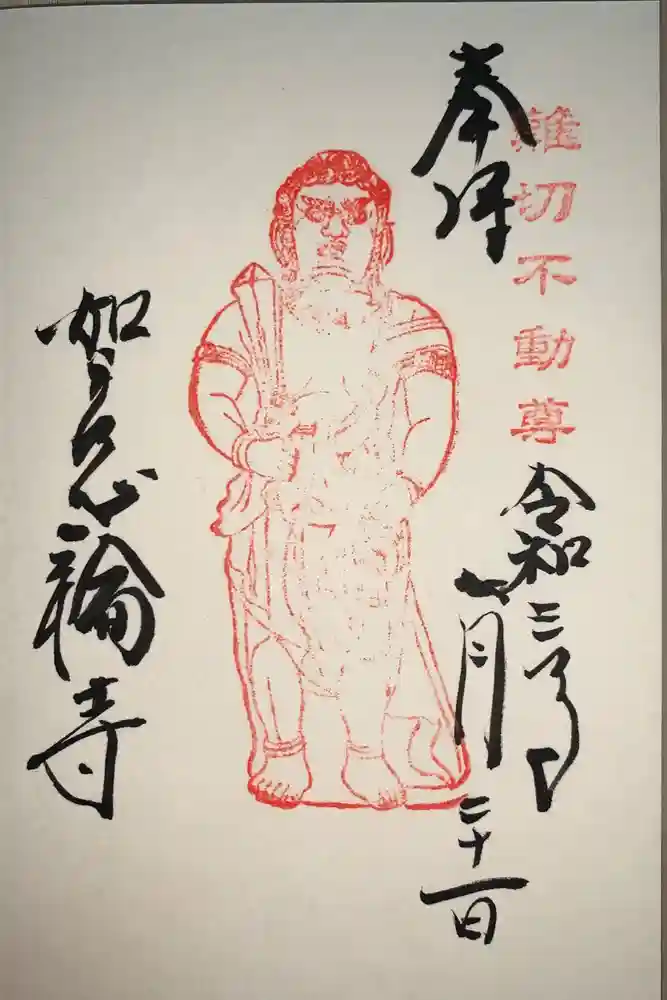 奉拝
難切不動尊
令和三年
一月二十一日
如意輪寺